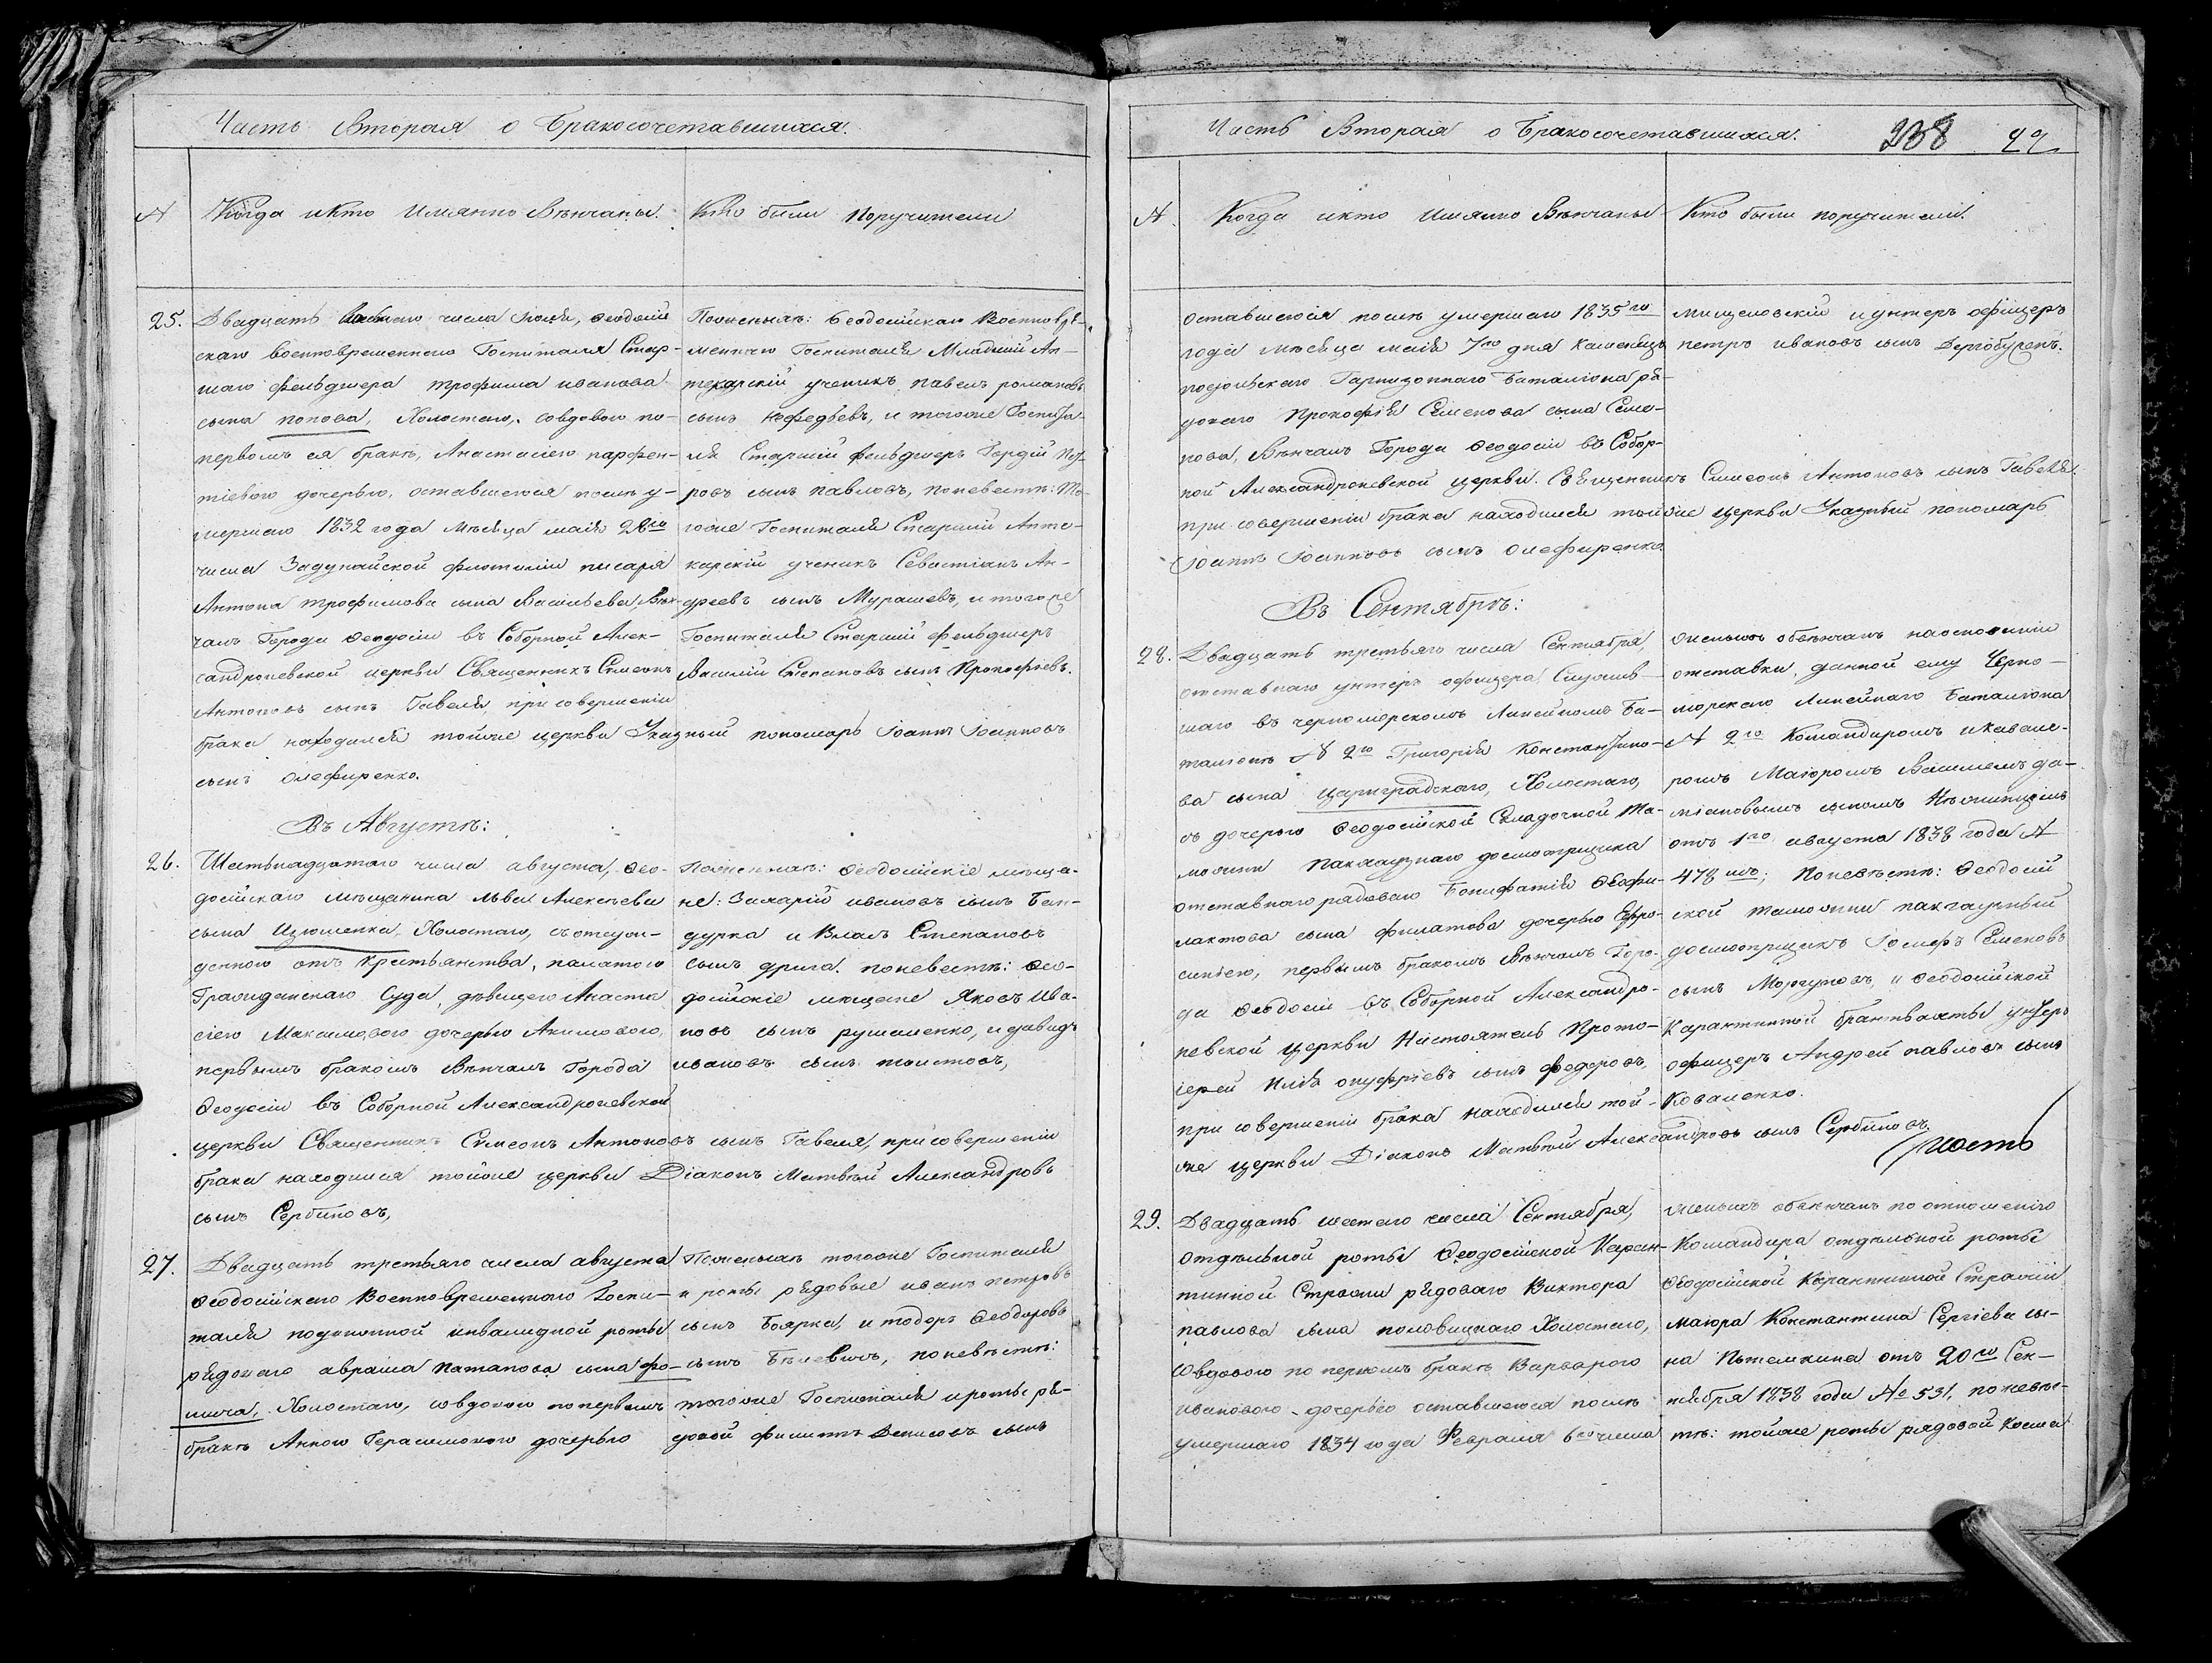 Часть Вторая о Бракосочетавшихся.
№ Когда и Кто Имянно Венчаны. Кто были Поручители
25. Двадцать числа Июля, Ѳеодосій
скаго военновременного Госпиталя Стар-
шаго фельдшера трофима иванова
сына попова, Холостаго, совдовою по-
первомъ ея бракѣ, Анастасіею парфен-
тіевою дочерью, оставшеюся послѣ у-
мершаго 1832 года Мѣсяца маія 28го
числа Задунайской флотиліи писаря
Антона трофимова сына Васильева Вѣн-
чалъ Города Ѳеодосіи въ Соборной Алек-
сандроневской церкви Священникъ Симеонъ
Антоновъ сынъ Гавеля при совершеніи
брака находился тойже церкви Указный пономарь Іоаннъ Іоанновъ
сынъ Олефиренко.
По женихѣ: Ѳеодосійскаго Военновре-
меннаго Госпиталя Младшій Ап-
текарскій ученикъ павелъ романовъ
сынъ Нефедьевъ, и тогоже Госпита-
ля Старшій фельдшеръ Гордій Пет-
ровъ сынъ павловъ, поневестѣ: То-
гоже Госпиталя Старшій Апте-
карскій ученикъ Севастіанъ Ан-
дреевъ сынъ Мурашевъ, и тогоже
Госпиталя Старшій фельдшеръ
Василій Степановъ сынъ Прокофьевъ.
Въ Августѣ:
26. Шестьнадцатаго числа августа, Ѳео-
досійскаго мѣщанина Льва Алексѣева
сына Изюменка, Холостаго, съ отсуж-
денною отъ крестьянства, палатою
Гражданскаго Суда, дѣвицею Анаста
сіею Максимовою дочерью Акимовою,
первымъ бракомъ Вѣнчалъ Города
Ѳеодосіи въ Соборной Александроневской
церкви Священникъ Симеонъ Антоновъ сынъ Гавеля, при совершеніи
брака находился тойже церкви Діаконъ Матвѣй Александровъ
сынъ Сербиновъ,
По женихѣ: Ѳеодосійскіе мѣща-
не: Захарій ивановъ сынъ Бан-
дурка и Власъ Степановъ
сынъ дрига. поневестѣ: Ѳео-
досійскіе мещане Яковъ Ива-
новъ сынъ рушаленко, и давидъ
ивановъ сынъ толстовъ,
27. Двадцать третьяго числа августа
Ѳеодосійскаго Военновременнаго Госпи-
таля подвижной инвалидной роты
рядоваго авраама Паталова сына фо-
мича, Холостаго, совдовою попервомъ
бракѣ Анною Герасимовою дочерью
По женихѣ тогоже Госпиталя
и роты рядовые иванъ петровъ
сынъ Боярка, и тодоръ Ѳеодоровъ
сынъ поневѣстѣ:
тогоже Госпиталя и роты ря-
довой филиппъ Денисовъ сынъ
Часть Вторая о Бракосочетавшихся. 238 22
№. Когда икто Имянно Вѣнчаны Кто были поручители.
оставшеюся послѣ умершаго 1835го
года мѣсяца маія 7го дня каменецъ
подольскаго Гарнизоннаго баталіона ря-
доваго Прокофія Семенова сына Семе-
нова, Вѣнчалъ Города Ѳеодосіи въ Собор-
ной Александроневской церкви. Священникъ Симеонъ Антоновъ сынъ Гавеля.
при совершеніи брака находился тойже церкви Указный пономарь
Іоаннъ Іоанновъ сынъ Олефиренко
мищеловскій и унтеръ офицеръ
петръ ивановъ сынъ
Въ Сентябрѣ:
28. Двадцать третьяго числа Сентября,
отставнаго унтеръ офицера Служив-
шаго въ черноморскомъ Линейномъ Ба-
таліонѣ № 2го Григорія Константино-
ва сына цариградскаго, Холостаго,
съ дочерью Ѳеодосійской Складочной Та-
можни Пакгаузнаго досмотрщика
отставнаго рядоваго Бонифатія Ѳеофи-
лактова сына филатова дочерью Ефро-
синіею, первымъ бракомъ Вѣнчалъ Горо-
да Ѳеодосіи въ Соборной Александро-
невской церкви Настоятель Прото-
іерей Илія онуфріевъ сынъ федоровъ,
при совершеніи брака находился той-
же церкви Діаконъ Матвѣй Александровъ сынъ Сербиновъ.
Женихъ обвѣнчанъ наосновніи
отставки, данной ему Черно-
морскаго Линейнаго Баталіона
№ 2го Командиромъ и кавале-
ромъ Маіоромъ Василіемъ да-
міановымъ сыномъ
отъ 1го августа 1838 года №
478мъ; Поневѣстѣ: Ѳеодосій
ской таможни пакгаузный
досмотрщикъ Іосифъ Семеновъ
сынъ Моргуновъ, и Ѳеодосійской
Карантинной брантвахты унтеръ
офицеръ Андрей павловъ сынъ
Коваленко.
29. Двадцать шестаго числа Сентября,
отдѣльной роты Ѳеодосійской Каран-
тинной Стражи рядоваго Виктора
павлова сына половицкаго Холостаго,
Совдовою по первомъ бракѣ Варварою
ивановою дочерью оставшеюся послѣ
умершаго 1834 года Февраля 6го числа
Женихъ обвѣнчанъ по отношенію
Командира отдѣльной роты
Ѳеодосійской Карантинной Стражи
маіора Константина Сергіева сы-
на Потемкина отъ 20го Сен-
тября 1838 года № 531, поневѣ-
стѣ: тойже роты рядовой Косма